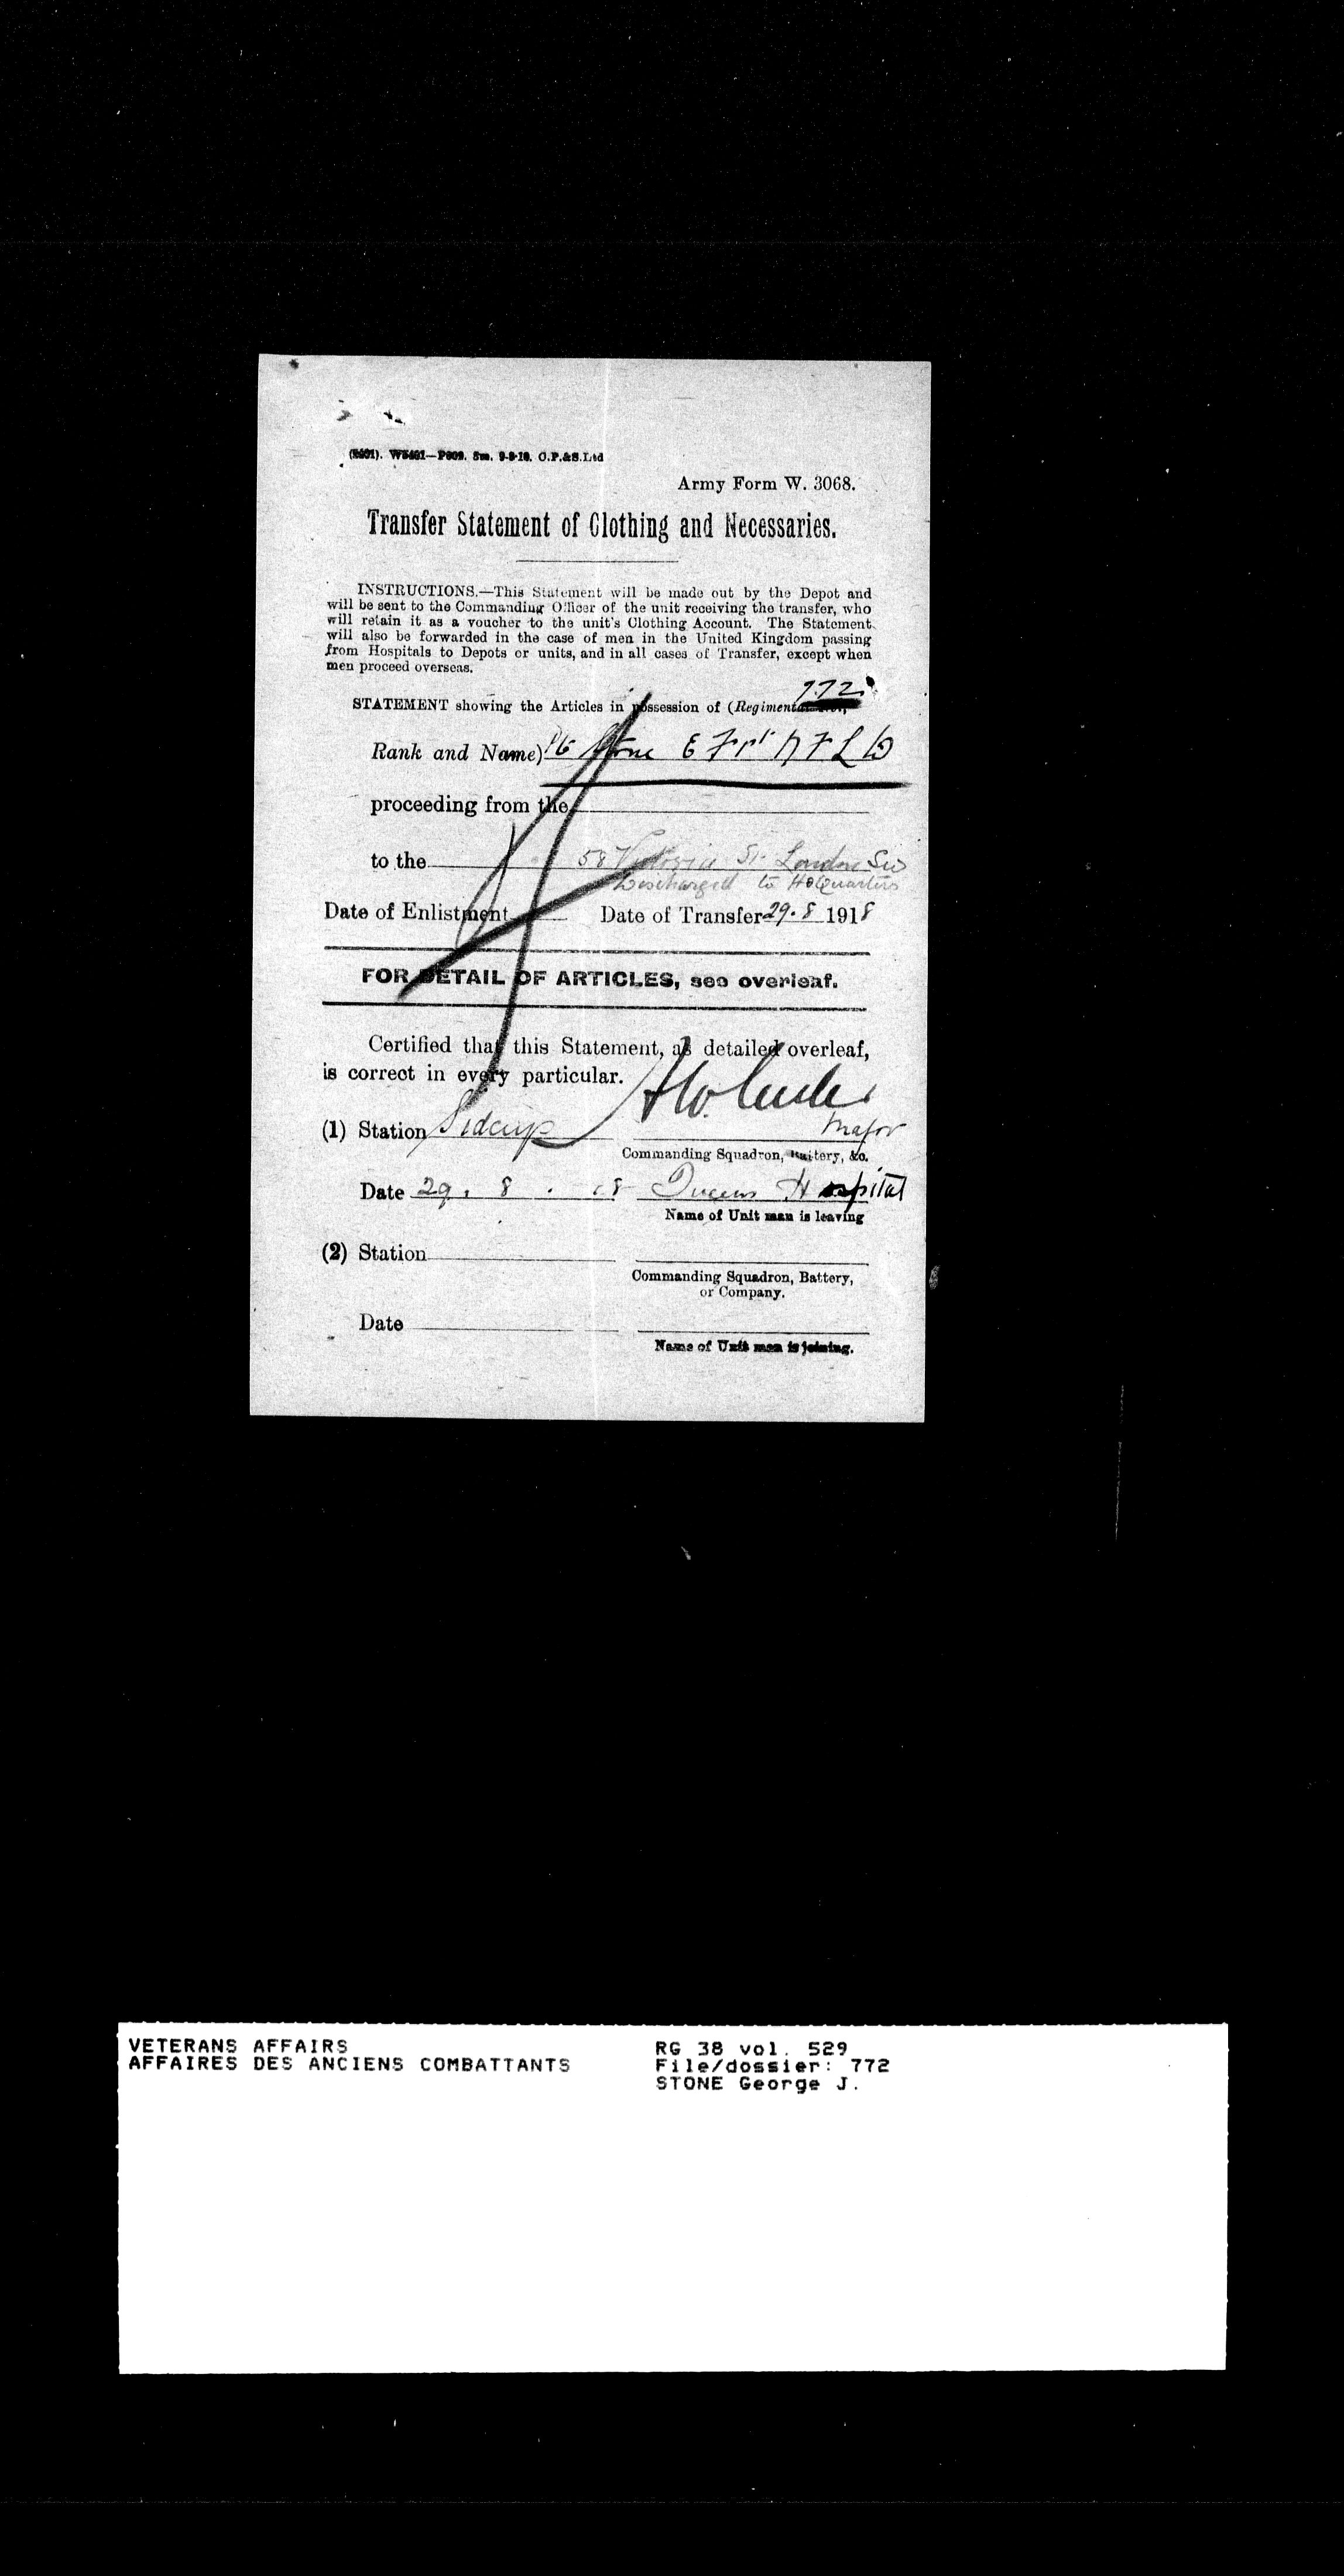 Army Form W. 3068.
Transfer Statement of Clothing and Necessaries.
INSTRUCTIONS.—This Statement will be made out by the Depot and
will be sent to the Commanding Officer of the unit receiving the transfer, who
will retain it as a voucher to the unit's Clothing Account. The Statement
will also be forwarded in the case of men in the United Kingdom passing
from Hospitals to Depots or units, and in all cases of Transfer, except when
men proceed overseas.
772
STATEMENT showing the Articles in possession of (Regimental No.,
Rank and Name) Pte Stone
proceeding from the
to the 58 Victoria St. London SW
Discharged to HdQuarters
Date of Enlistment Date of Transfer 29.8 1918
FOR DETAIL OF ARTICLES, see overleaf.
Certified that this Statement, as detailed overleaf,
is correct in every particular.
(1) Station Sidcup Major
Commanding Squadron, Battery, &c.
Date 29. 8. 18 Queens Hospital
Name of Unit man is leaving
(2) Station
Commanding Squadron, Battery,
or Company.
Date
Name of Unit man is joining.
VETERANS AFFAIRS RG 38 vol. 529
AFFAIRES DES ANCIENS COMBATTANTS File/dossier: 772
STONE George J.